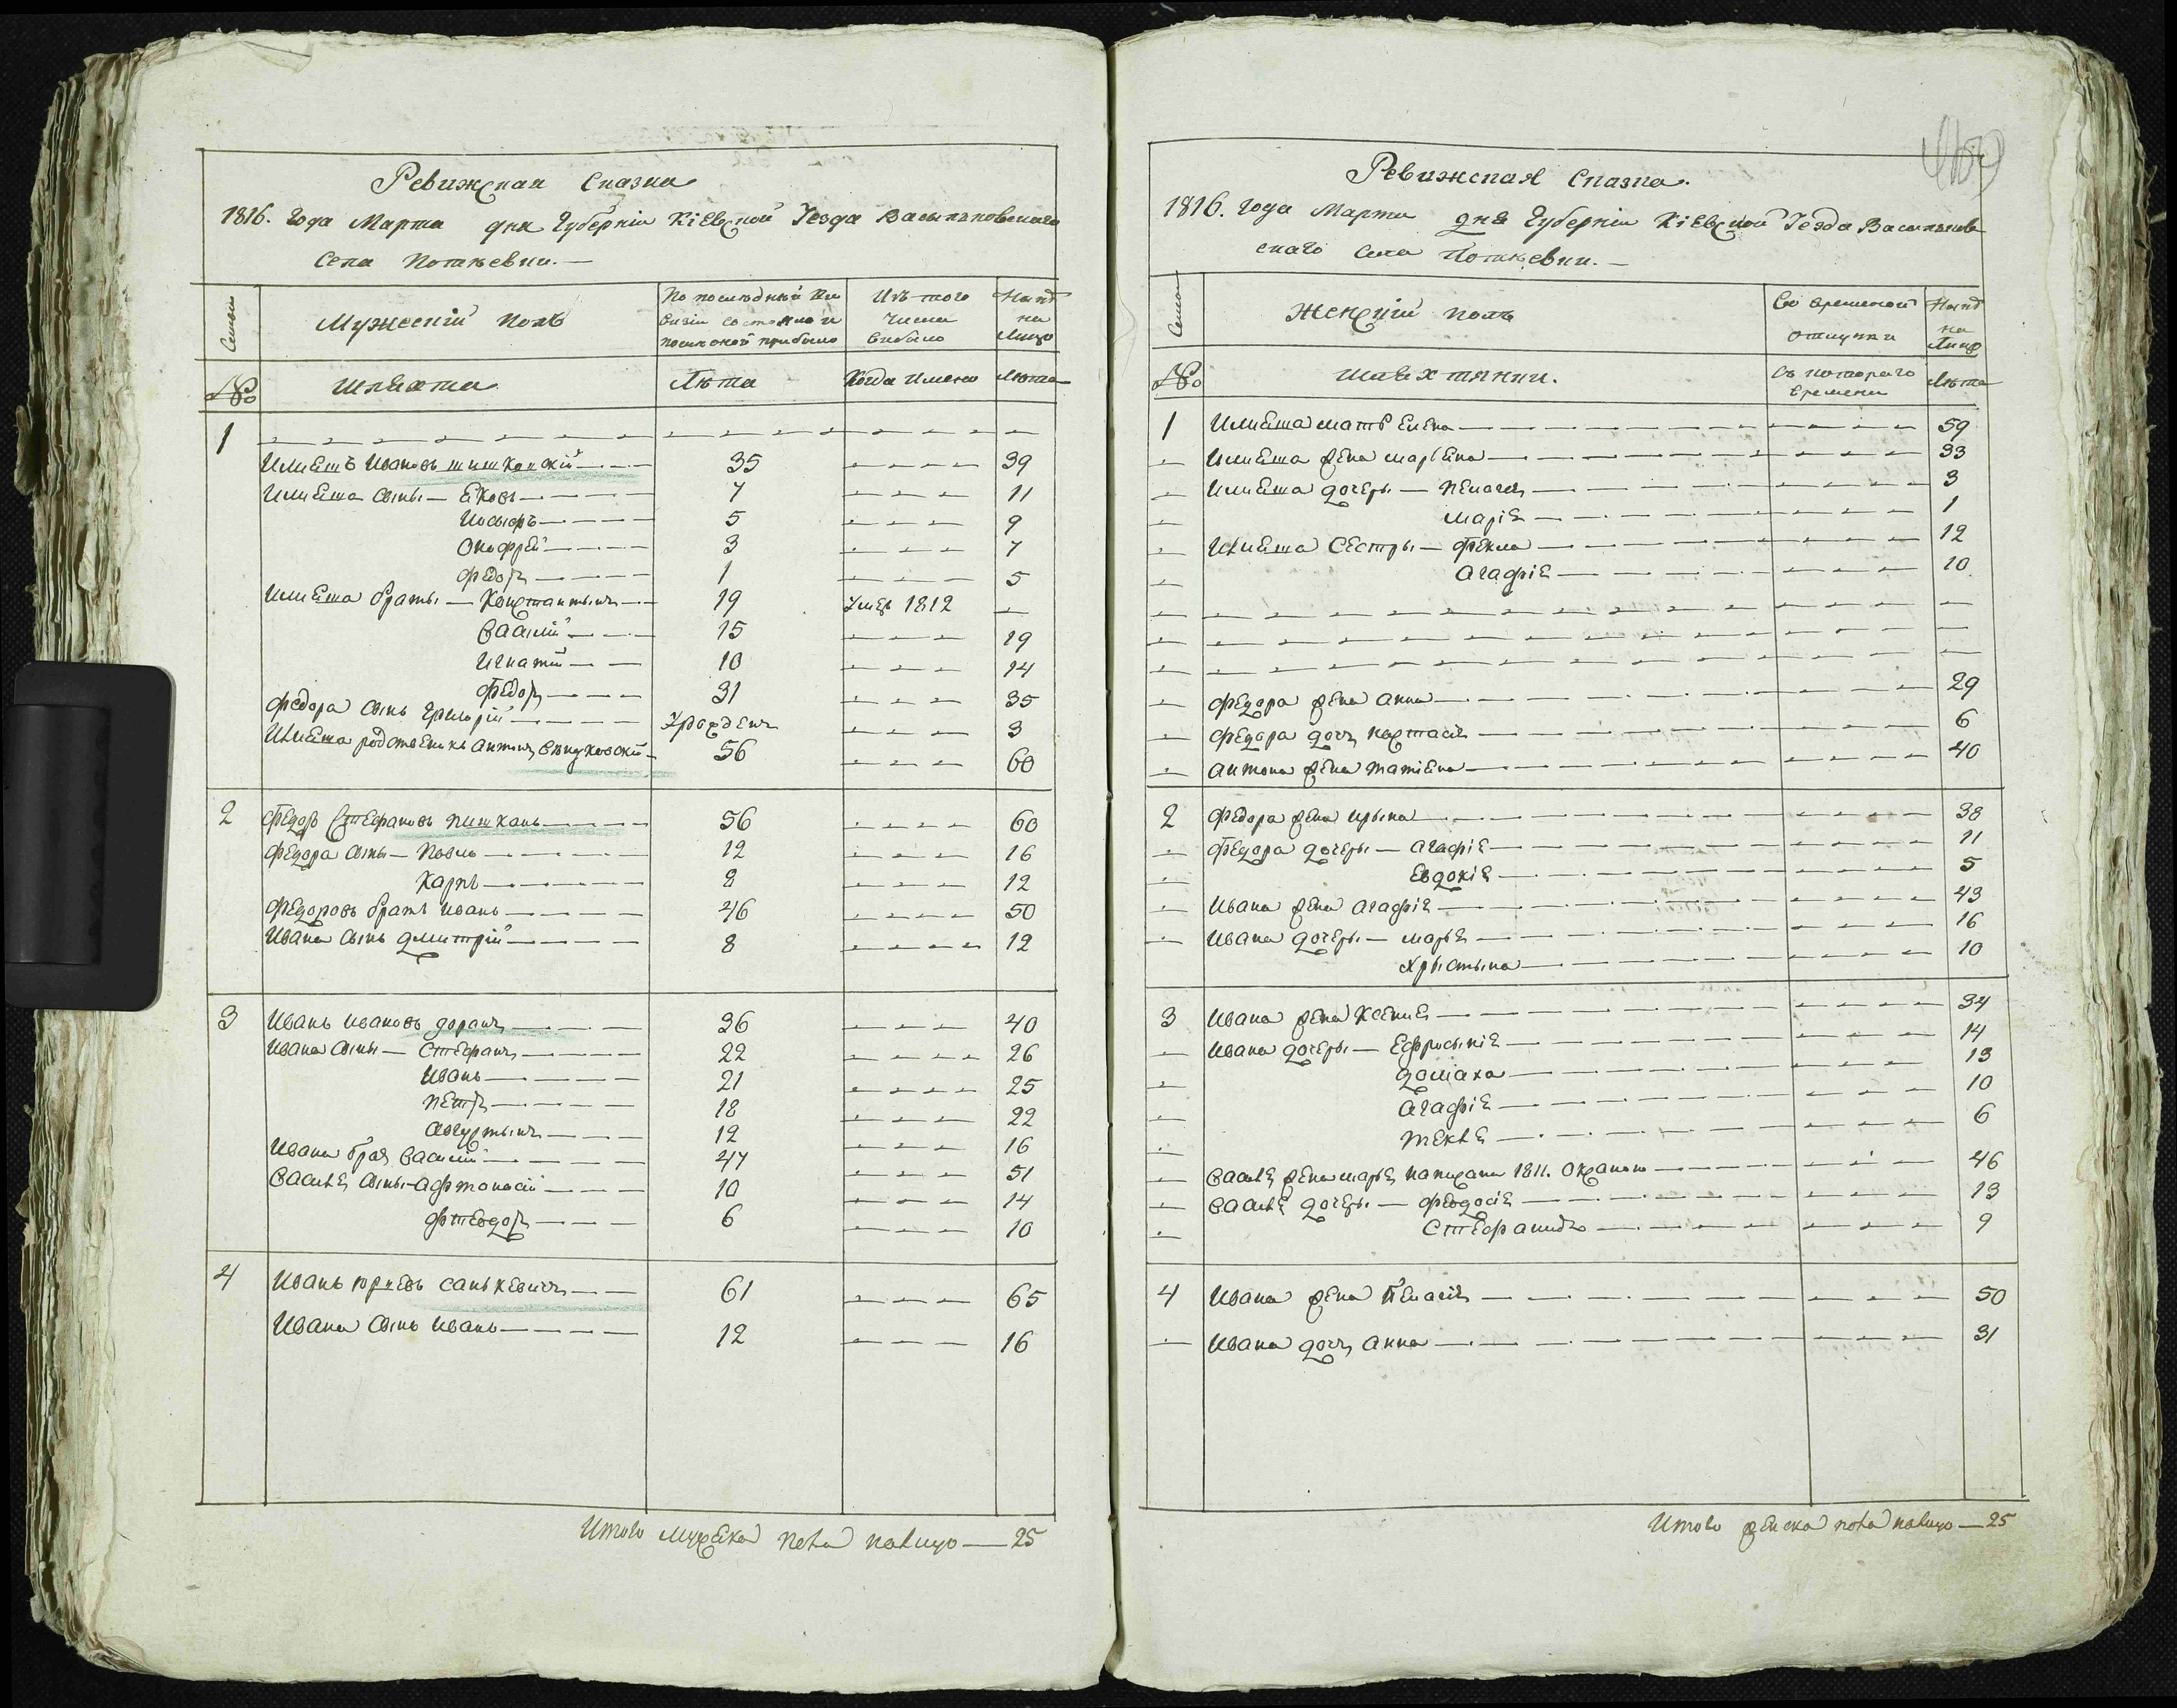 Ревижская Сказка
1816. года Марта дня Губерніи Кіевской Уезда Васильковскаго
Села Поткевки.—
Семьи
Мужескій полъ
По последней Ре
визіи состояло и
после оной прибыло
Изъ того
числа
выбыло
Ныне
на
Лицо
№
Шляхта
Лета
Когда имено
Лета
1
Илиешъ Ивановъ шишковскій 35 39
Илиеша сыны — Яковъ 7 11
Иосыфъ 5 9
Онофрей 3 7
Федоръ 1 5
Илиеша браты — Константынъ 19 Умеръ 1812
Васылій 15 19
Игнатій 10 14
Федоръ 31 35
Федора сынъ Григорій Урожденъ 3
Илиеша родственикъ Антонъ 56 60
2 Федоръ Стефановъ пишканъ 56 60
Федора сыны — Павелъ 12 16
Карпъ 8 12
Федоровъ братъ Иванъ 46 50
Ивана сынъ Дмитрій 8 12
3 Иванъ Ивановъ доранъ 36 40
Ивана сыны — Стефанъ 22 26
Иванъ 21 25
Петръ 18 22
Августынъ 12 16
Ивана братъ Васылій 47 51
Василя сыны — Афтонасій 10 14
Фтеодоръ 6 10
4 Иванъ Юріевъ санькевичъ 61 65
Ивана сынъ Иванъ 12 16
Итого мужеска пола налицо — 25
Ревижская Сказка.
1816. года Марта дня Губерніи Кіевской Уезда Васильков
скаго Села Поткевки.—
Семьи
Женскій полъ
Во временой
отлучки
Ныне
на
Лицо
№
Шляхтянки.
Съ котораго
времени
Лета
1 Илиеша мать Елена 59
Илиеша жена марьена 33
Илиеша дочеры — Пелагея 3
Марія 1
Илиеша Сестры — Фекла 12
Агафія 10
Федора жена Анна 29
Федора дочъ Настасія 6
Антона жена татіена 40
2 Федора жена ирына 38
Федора дочеры — Агафія 11
Евдокія 5
Ивана жена Агафія 43
Ивана дочеры — марья 16
Хрыстына 10
3 Ивана жена Ксения 34
Ивана дочеры — Ефросынія 14
домаха 13
Агафія 10
текля 6
Василя жена марья 1811. 46
Василя дочеры — Феодосія 13
Стефанида 9
4 Ивана жена Пелагія 50
Ивана дочъ Анна 31
Итого женска пола налицо — 25